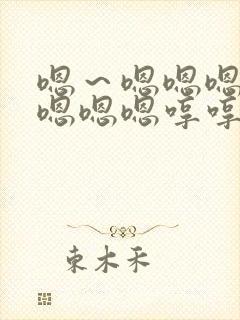 嗯~嗯嗯嗯
嗯嗯嗯哼哼
束木禾